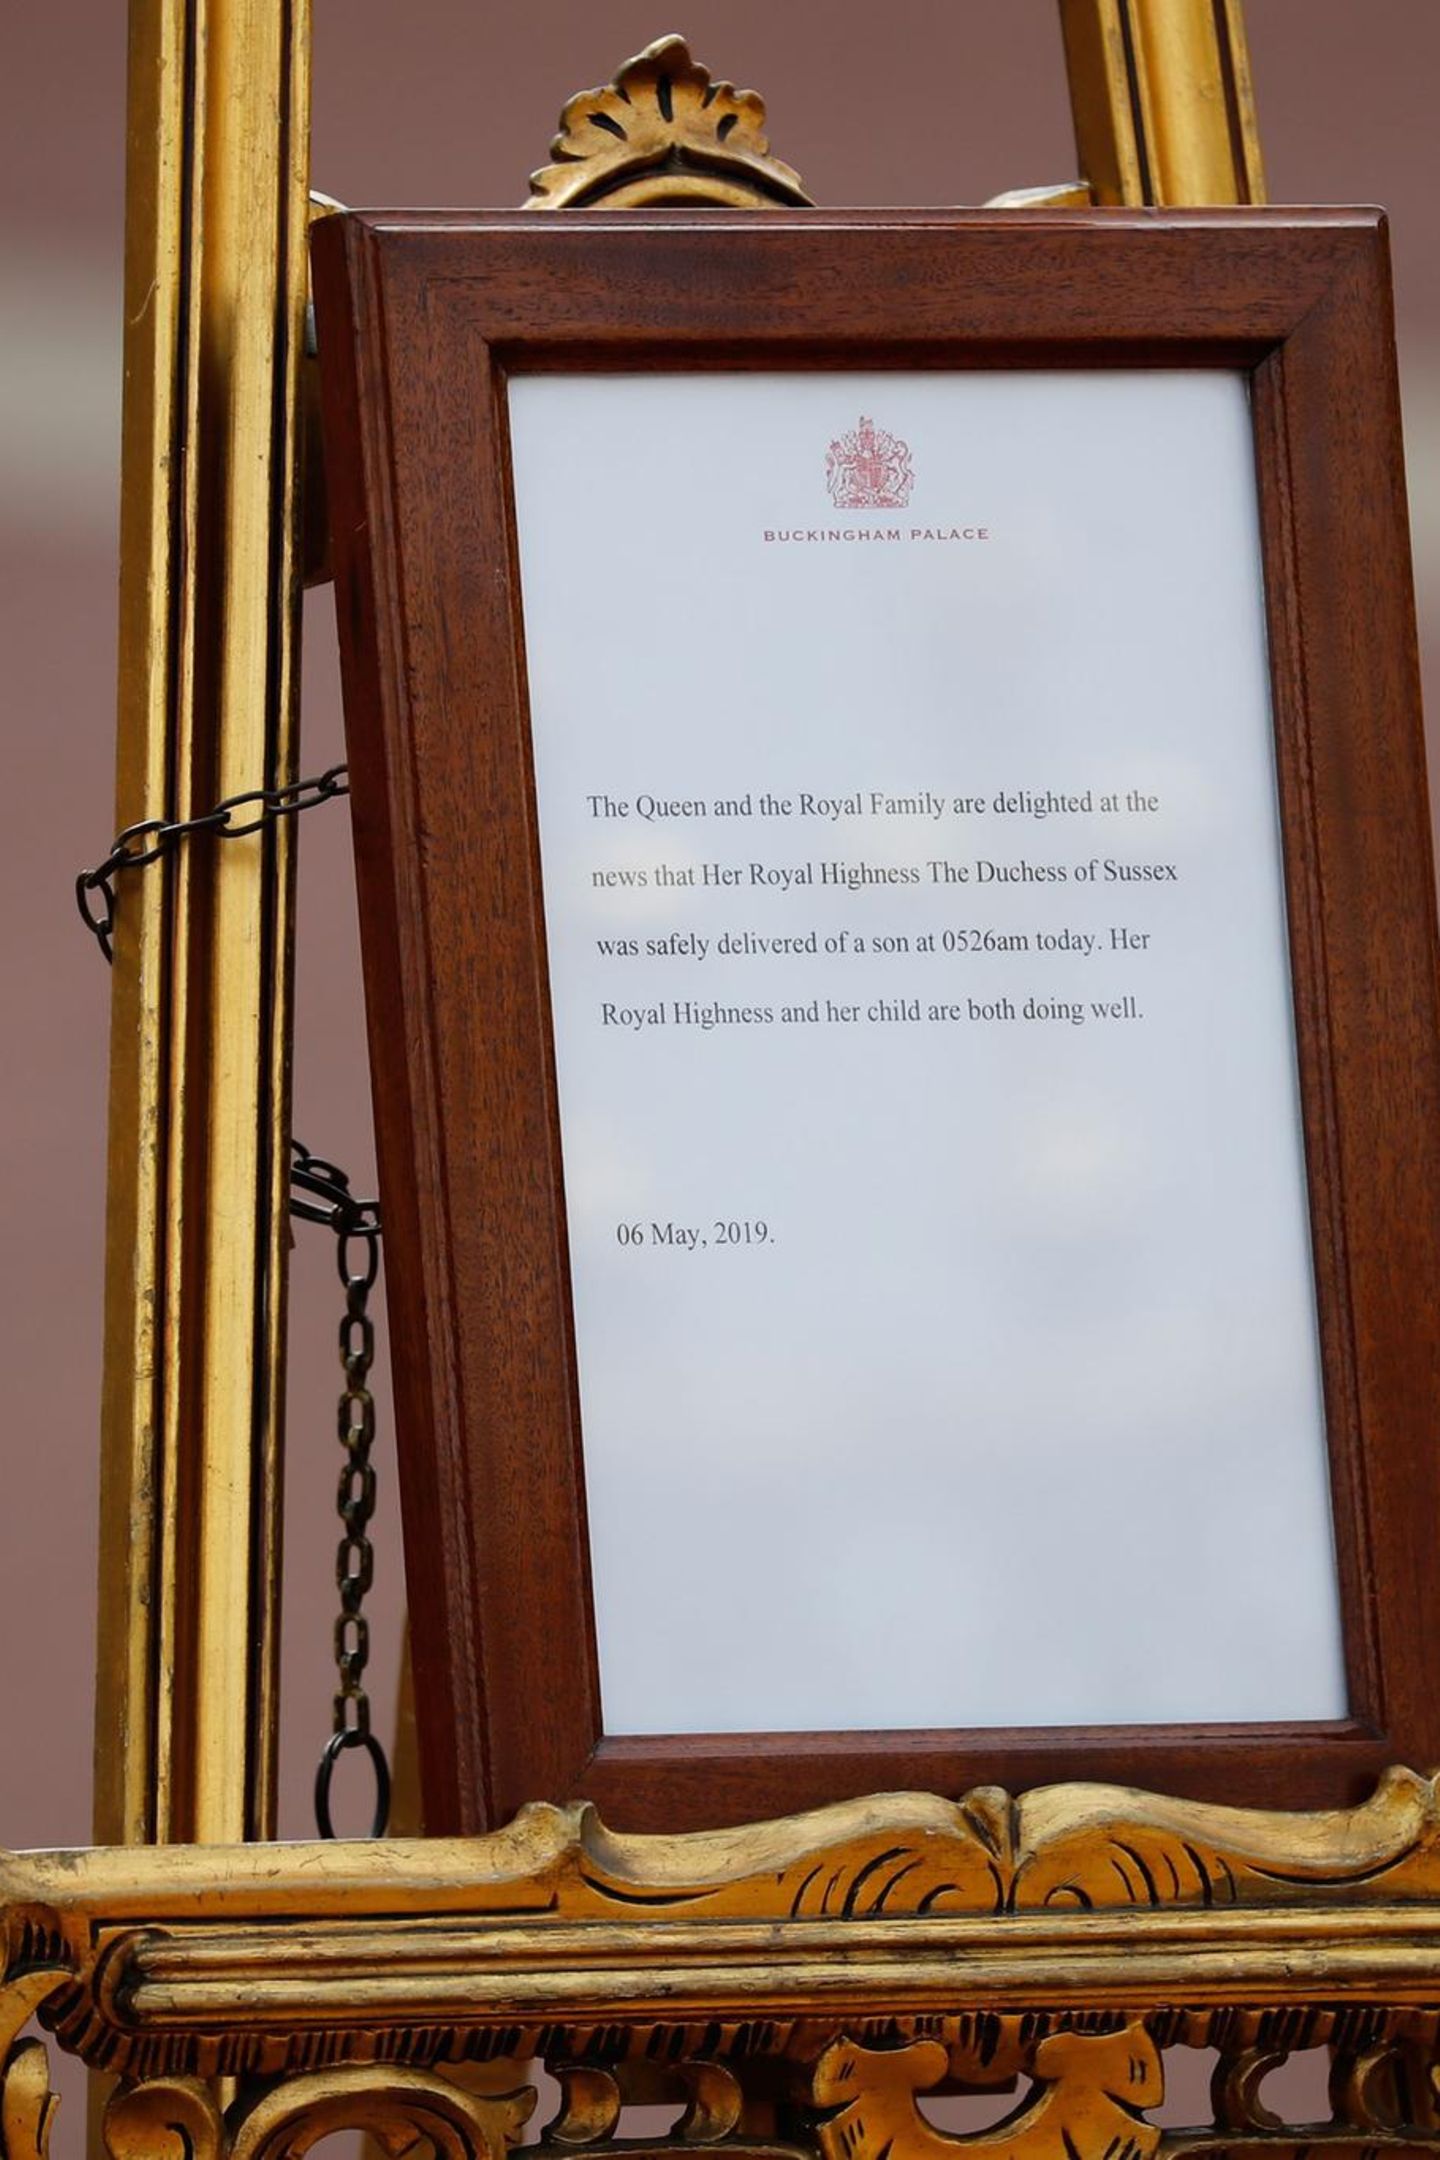 BUCKINGHAM PALACE
The Queen and the Royal Family are delighted at the
news that Her Royal Highness The Duchess of Sussex
was safely delivered of a son at 0526am today. Her
Royal Highness and her child are both doing well.
06 May, 2019.